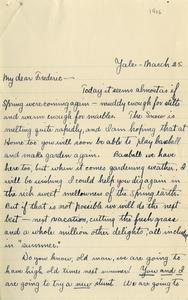 1916
Yale - March 25.
My dear Frederic -
Today it seems almost as if
Spring were coming again - muddy enough for stilts
and warm enough for marbles. The snow is
melting quite rapidly, and I am hoping that at
Home too you will soon be able to play baseball
and make garden again. Baseball we have
here too, but when it comes gardening weather, I
will be wishing I could help you dig again in
the rich sweet mellowness of the Spring earth.
But if that is not possible we will do the next
best - next vacation, cutting the fresh grass
and a whole million other delights, all inclus
in "summer."
Do you know, old man, we are going to
have high old times next summer! You and I
are going to try a new stunt. We are going